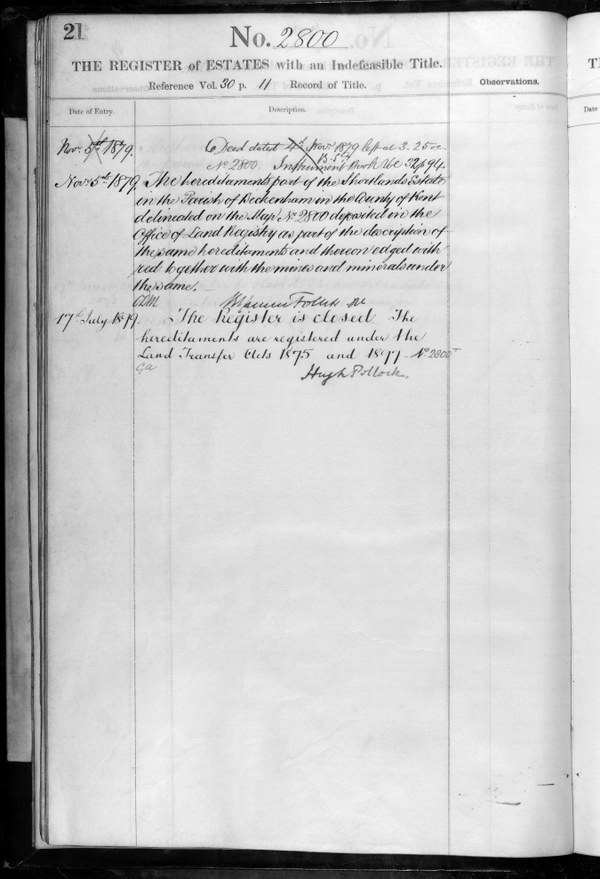 21
No. 2800
THE REGISTER of ESTATES with an Indefeasible Title.
Reference Vol. 30 p. 11 Record of Title.
Observations.
Date of Entry.
Description.
Nov. 5th 1879.
Deed dated 4th Nov. 1879 at 3.25
No 2800. Instrument Book p 94.
Nov. 5th 1879.
The hereditaments part of the Shortlands Estate
in the Parish of Beckenham in the County of Kent
delineated on the Map No 2800 deposited in the
Office of Land Registry as part of the description of
the same hereditaments and thereon edged with
red together with the mines and minerals under
the same.
Follett
17th July 1899.
The Register is closed. The
hereditaments are registered under the
Land Transfer Acts 1875 and 1897. No 2800
Hugh Pollock.